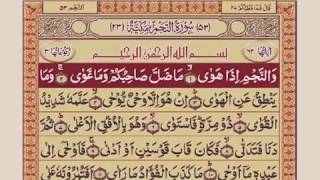 قال فما خطبكم ٢٧
النجم ٥٣
(٥٣) سورة النجم مكية (٢٣)
اٰیاتها ٦٢
ركوعاتها ٣
بسم الله الرحمن الرحيم
وَالنَّجْمِ اِذَا هَوٰى ۝ مَا ضَلَّ صَاحِبُكُمْ وَمَا غَوٰى ۝ وَمَا
يَنْطِقُ عَنِ الْهَوٰى ۝ اِنْ هُوَ اِلَّا وَحْيٌ يُّوْحٰى ۝ عَلَّمَهٗ شَدِيْدُ
الْقُوٰى ۝ ذُوْ مِرَّةٍ فَاسْتَوٰى ۝ وَهُوَ بِالْاُفُقِ الْاَعْلٰى ۝ ثُمَّ
دَنَا فَتَدَلّٰى ۝ فَكَانَ قَابَ قَوْسَيْنِ اَوْ اَدْنٰى ۝ فَاَوْحٰى اِلٰى
عَبْدِهٖ مَا اَوْحٰى ۝ مَا كَذَبَ الْفُؤَادُ مَا رَاٰى ۝ اَفَتُمٰرُوْنَهٗ عَلٰى